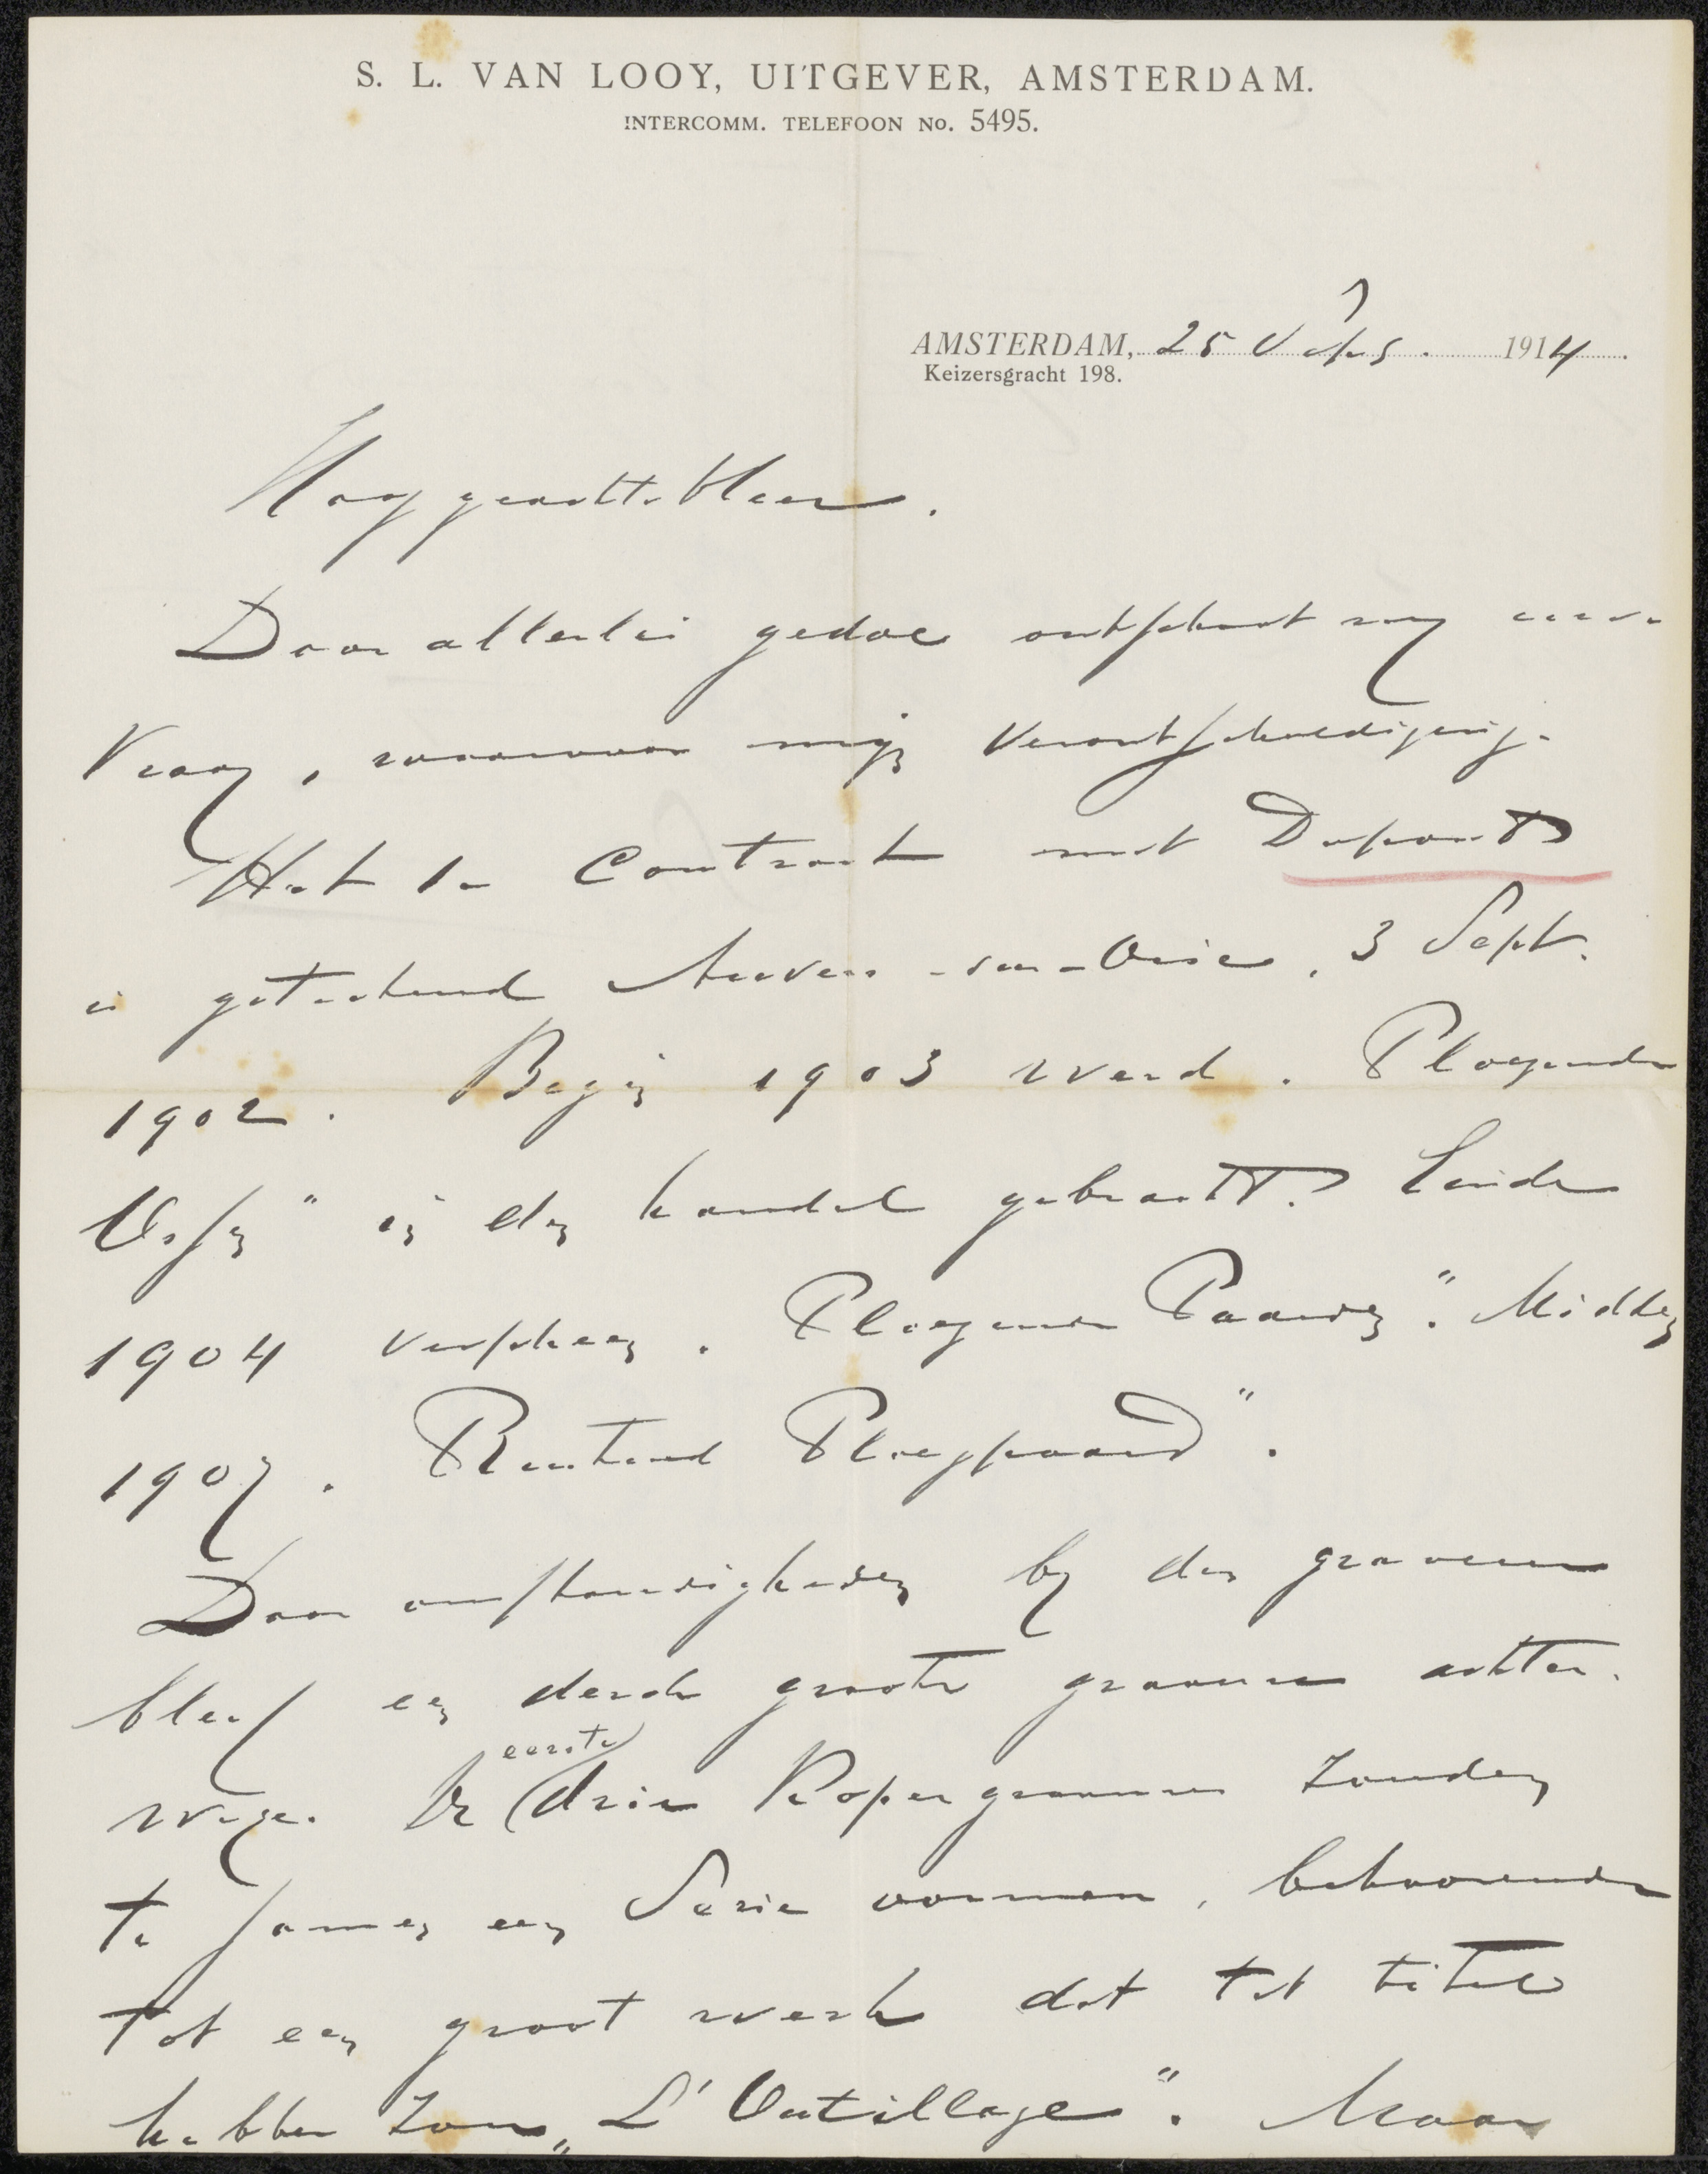 S. L. VAN LOOY, UITGEVER, AMSTERDAM.
INTERCOMM. TELEFOON No. 5495.
AMSTERDAM, 25 1914.
Keizersgracht 198.
Hooggeachte Heer.
Door allerlei gedoe ontschoot mij uwe
vraag, waarvoor mijn verontschuldiging.
Het 1e Contract met Dupont
is geteekend Auvers-sur-Oise, 3 Sept.
1902. Begin 1903 werd „Ploegende
Ossen" in den handel gebracht. Einde
1904 verscheen „Ploegende Paarden". Midden
1907 „Rustend Ploegpaard".
Door omstandigheden bij den graveur
bleef een derde groote gravure achter-
wege. De eerste drie kopergravures zouden
te samen een Serie vormen, behoorende
tot een groot werk dat tot titel
hebben zou „L'Outillage". Maar